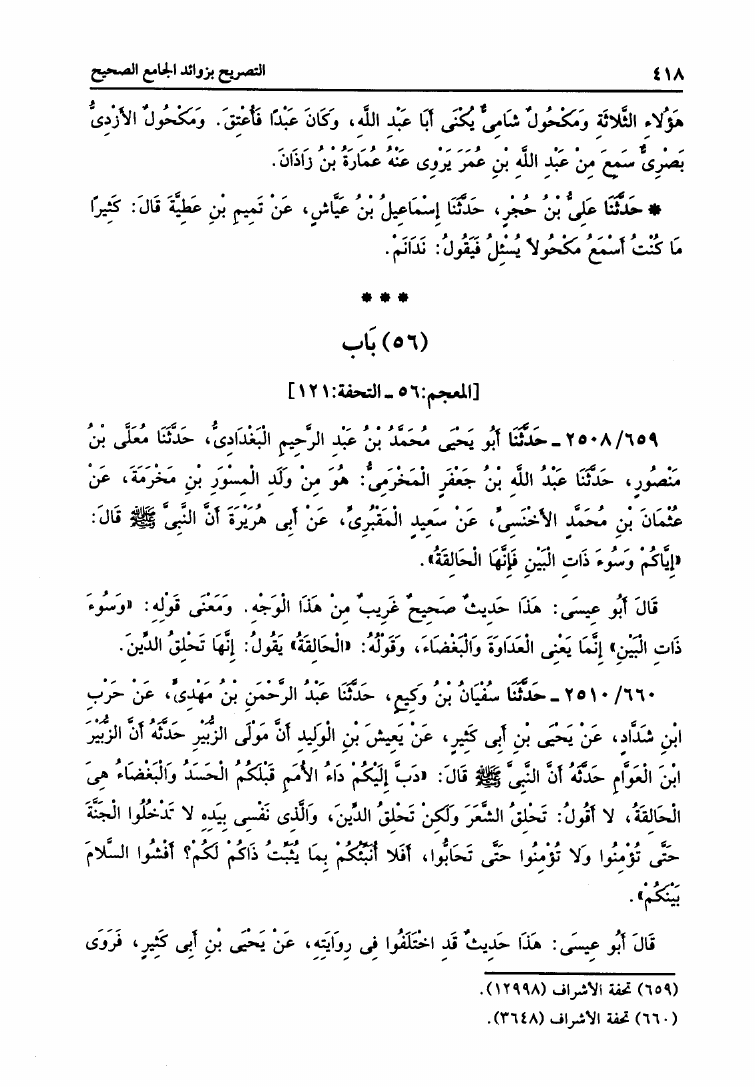 ٤١٨ التصريح بزوائد الجامع الصحيح
هَؤُلَاءِ الثَّلَاثَةِ وَمَكْحُولٌ شَامِيٌّ يُكْنَى أَبَا عَبْدِ اللَّهِ، وَكَانَ عَبْدًا فَأُعْتِقَ. وَمَكْحُولٌ الأَزْدِيُّ
بَصْرِيٌّ سَمِعَ مِنْ عَبْدِ اللَّهِ بْنِ عُمَرَ يَرْوِى عَنْهُ عُمَارَةُ بْنُ زَاذَانَ.
* حَدَّثَنَا عَلِيُّ بْنُ حُجْرٍ، حَدَّثَنَا إِسْمَاعِيلُ بْنُ عَيَّاشٍ، عَنْ تَمِيمِ بْنِ عَطِيَّةَ قَالَ: كَثِيرًا
مَا كُنْتُ أَسْمَعُ مَكْحُولاً يُسْئِلُ فَيَقُولُ: نَدَانَمْ.
* * *
(٥٦) بَاب
[المعجم:٥٦ ـ التحفة:١٢١]
٢٥٠٨/٦٥٩ ـ حَدَّثَنَا أَبُو يَحْيَى مُحَمَّدُ بْنُ عَبْدِ الرَّحِيمِ الْبَغْدَادِيُّ، حَدَّثَنَا مُعَلَّى بْنُ
مَنْصُورٍ، حَدَّثَنَا عَبْدُ اللَّهِ بْنُ جَعْفَرٍ الْمَخْرَمِيُّ: هُوَ مِنْ وَلَدِ الْمِسْوَرِ بْنِ مَخْرَمَةَ، عَنْ
عُثْمَانَ بْنِ مُحَمَّدٍ الأَخْنَسِيِّ، عَنْ سَعِيدٍ الْمَقْبُرِيِّ، عَنْ أَبِى هُرَيْرَةَ أَنَّ النَّبِيَّ ﷺ قَالَ:
«إِيَّاكُمْ وَسُوءَ ذَاتِ الْبَيْنِ فَإِنَّهَا الْحَالِقَةُ».
قَالَ أَبُو عِيسَى: هَذَا حَدِيثٌ صَحِيحٌ غَرِيبٌ مِنْ هَذَا الْوَجْهِ. وَمَعْنَى قَوْلِهِ: «وَسُوءَ
ذَاتِ الْبَيْنِ» إِنَّمَا يَعْنِى الْعَدَاوَةَ وَالْبَغْضَاءَ، وَقَوْلُهُ: «الْحَالِقَةُ» يَقُولُ: إِنَّهَا تَحْلِقُ الدِّينَ.
٢٥١٠/٦٦٠ ـ حَدَّثَنَا سُفْيَانُ بْنُ وَكِيعٍ، حَدَّثَنَا عَبْدُ الرَّحْمَنِ بْنُ مَهْدِيٍّ، عَنْ حَرْبِ
ابْنِ شَدَّادٍ، عَنْ يَحْيَى بْنِ أَبِى كَثِيرٍ، عَنْ يَعِيشَ بْنِ الْوَلِيدِ أَنَّ مَوْلَى الزُّبَيْرِ حَدَّثَهُ أَنَّ الزُّبَيْرَ
ابْنَ الْعَوَّامِ حَدَّثَهُ أَنَّ النَّبِيَّ ﷺ قَالَ: «دَبَّ إِلَيْكُمْ دَاءُ الأُمَمِ قَبْلَكُمُ الْحَسَدُ وَالْبَغْضَاءُ هِىَ
الْحَالِقَةُ، لا أَقُولُ: تَحْلِقُ الشَّعَرَ وَلَكِنْ تَحْلِقُ الدِّينَ، وَالَّذِى نَفْسِى بِيَدِهِ لا تَدْخُلُوا الْجَنَّةَ
حَتَّى تُؤْمِنُوا وَلا تُؤْمِنُوا حَتَّى تَحَابُّوا، أَفَلا أُنَبِّئُكُمْ بِمَا يُثَبِّتُ ذَاكُمْ لَكُمْ؟ أَفْشُوا السَّلامَ
بَيْنَكُمْ».
قَالَ أَبُو عِيسَى: هَذَا حَدِيثٌ قَدِ اخْتَلَفُوا فِى رِوَايَتِهِ، عَنْ يَحْيَى بْنِ أَبِى كَثِيرٍ، فَرَوَى
(٦٥٩) تحفة الأشراف (١٢٩٩٨).
(٦٦٠) تحفة الأشراف (٣٦٤٨).